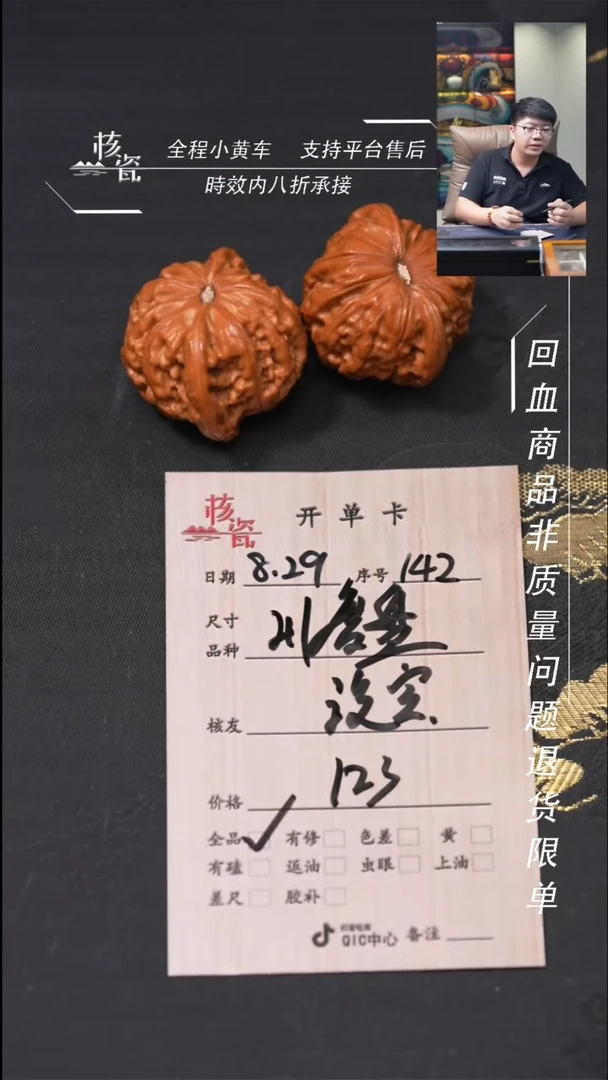 核瓷
全程小黄车 支持平台售后
時效内八折承接
回血商品非质量问题退货限单
核瓷
开单卡
日期 8.29 序号 142
尺寸
品种
核友
价格 123
全品 有修 色差 黄
有磕 返油 虫眼 上油
差尺 胶补
QIC中心 备注